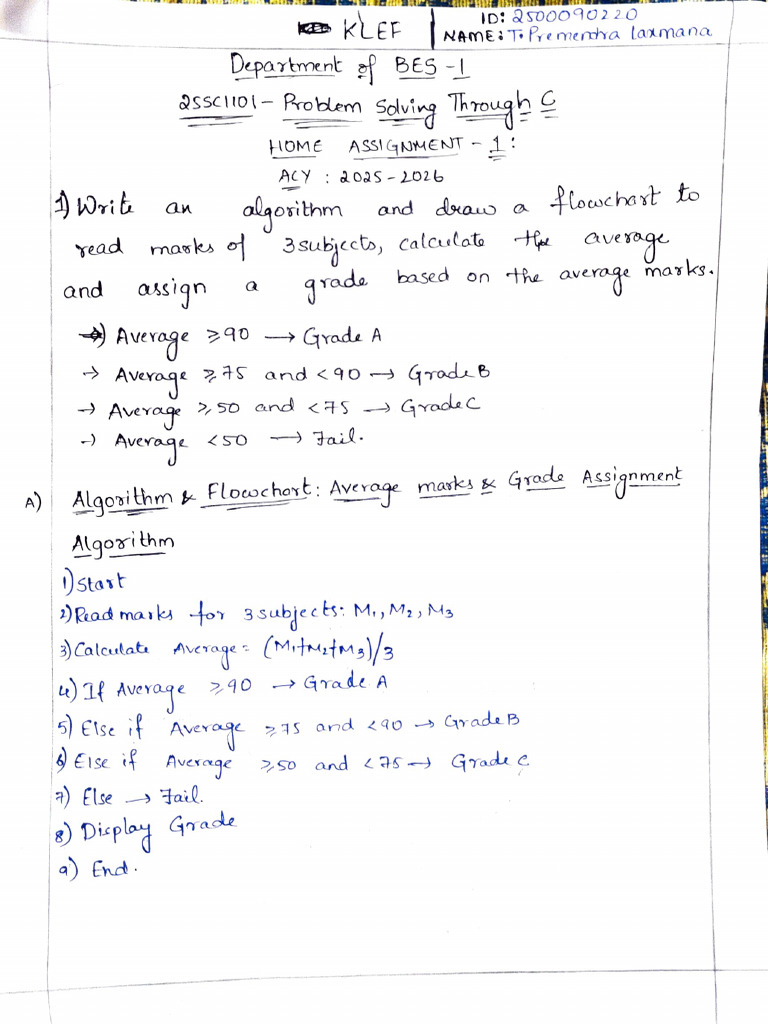 KLEF
ID: 2500090220
NAME: T. Premendra laxmana
Department of BES-1
25SC1101 - Problem Solving Through C
HOME ASSIGNMENT - 1 :
ACY : 2025-2026
1) Write an algorithm and draw a flowchart to
read marks of 3 subjects, calculate the average
and assign a grade based on the average marks.
→) Average ≥90 → Grade A
→ Average ≥75 and <90 → Grade B
→ Average ≥50 and <75 → Grade C
→) Average <50 → Fail.
A) Algorithm & Flowchart: Average marks & Grade Assignment
Algorithm
1) Start
2) Read marks for 3 subjects: M1, M2, M3
3) Calculate Average = (M1+M2+M3)/3
4) If Average ≥90 → Grade A
5) Else if Average ≥75 and <90 → Grade B
6) Else if Average ≥50 and <75 → Grade C
7) Else → Fail.
8) Display Grade
9) End.